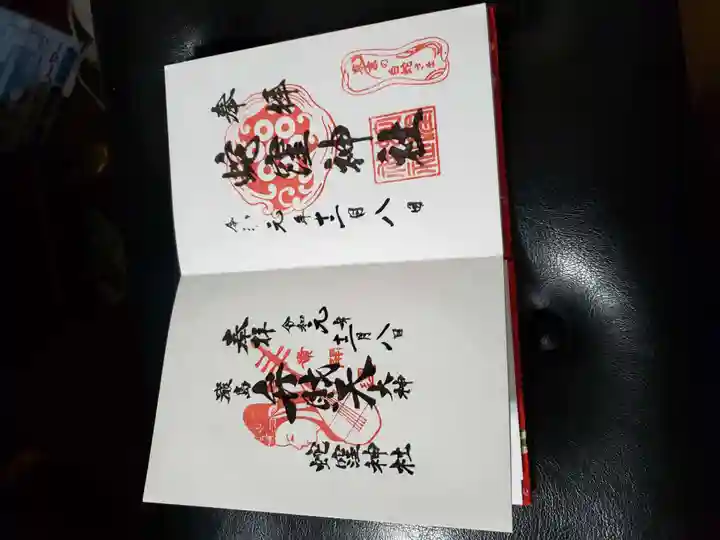 東京の白蛇さま
奉拝
蛇窪神社
令和元年十二月八日
奉拝
令和元年十二月八日
厳島弁財天大神
蛇窪神社